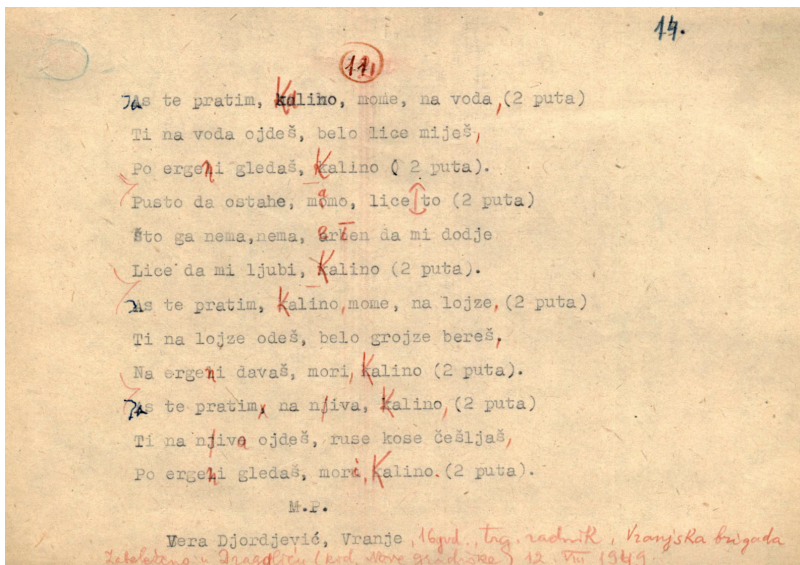 14.
11.
Ja te pratim, Kalino, mome, na voda, (2 puta)
Ti na voda ojdeš, belo lice miješ,
Po ergeni gledaš, Kalino ( 2 puta).
Pusto da ostahe, momo, lice to (2 puta)
Što ga nema, nema, da mi dodje
Lice da mi ljubi, Kalino (2 puta).
Ja te pratim, Kalino, mome, na lojze, (2 puta)
Ti na lojze odeš, belo grojze bereš,
Na ergeni davaš, mori, Kalino (2 puta).
Ja te pratim, na njiva, Kalino, (2 puta)
Ti na njiva ojdeš, ruse kose češljaš,
Po ergeni gledaš, mori, Kalino. (2 puta).
M.P.
Vera Djordjević, Vranje, 16 god., trg. radnik, Vranjska brigada
Zabeleženo u Dragaliću (kod Nove Gradiške) 12. VIII 1949.